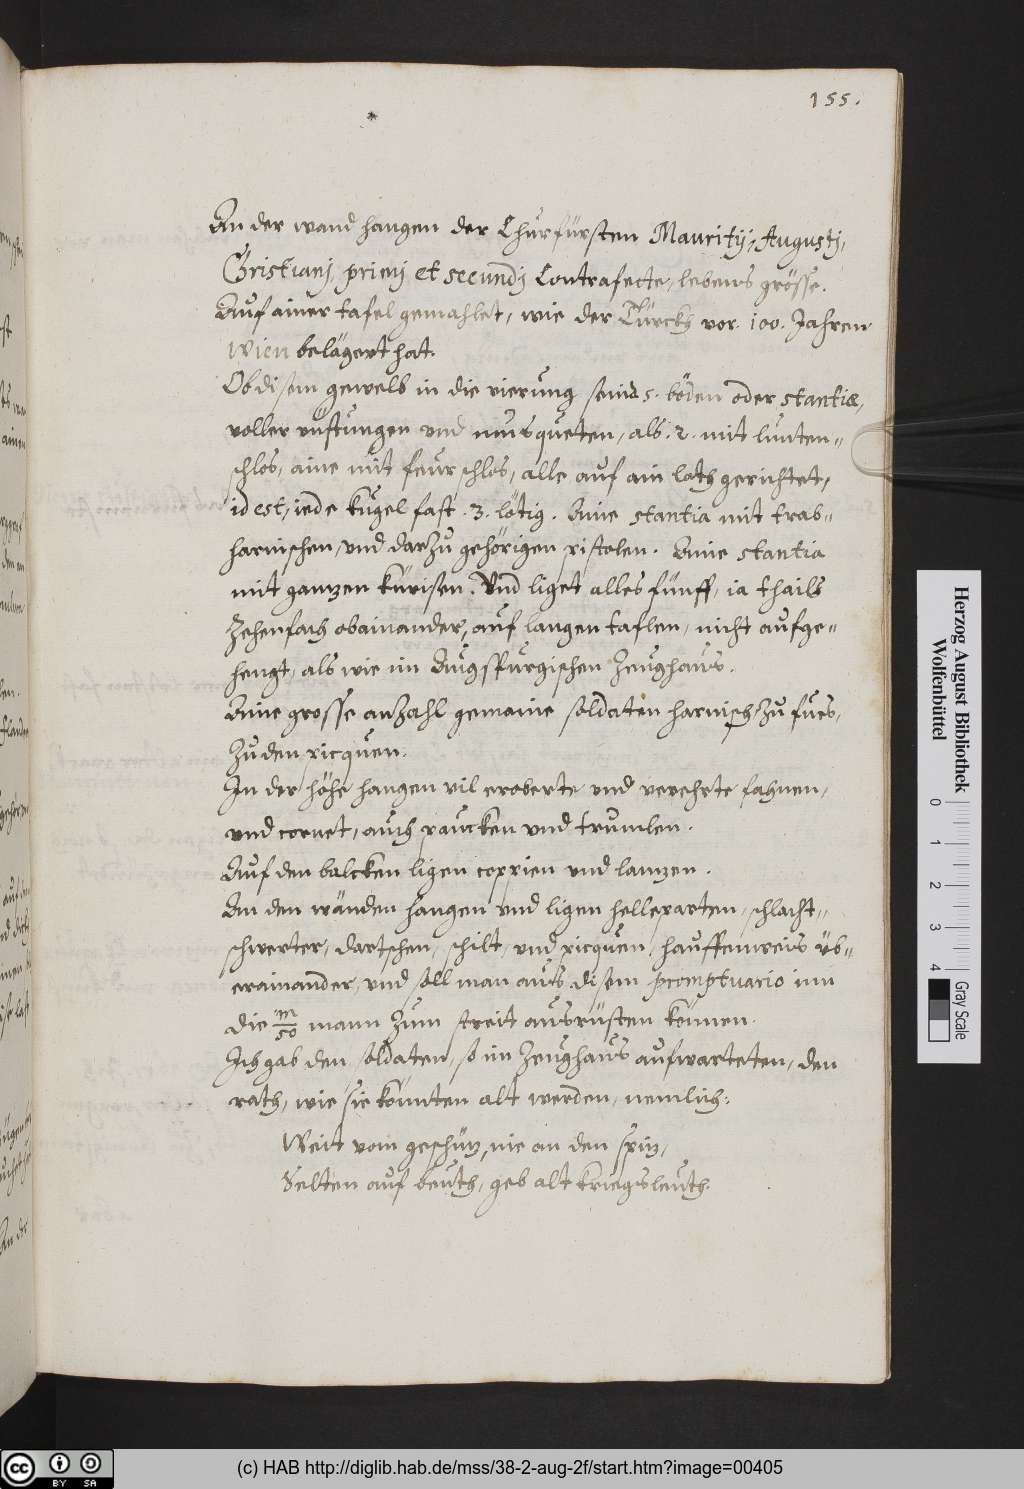 155.
An der wand hangen der Churfürsten Mauritij, Augustj,
Christianj, primj et secundj Contrafecte, lebens grösse.
Auf ainer tafel gemahlet, wie der Türckh vor. 100. Jahren
Wien belägert hat.
Ob disem gewelb in die vierung seind 5. böden oder stantiæ,
voller rüstungen und musqueten, als. 2. mit lunten-
schlos, aine mit feurschlos, alle auf ain loth gerichtet,
id est, iede kugel fast. 3. lötig. Aine stantia mit trab-
harnischen, und darzu gehörigen pistolen. Aine stantia
mit ganzen kürisen. Und liget alles fünff, ia thails
zehenfach obainander, auf langen taflen, nicht aufge-
hengt, als wie im Augspurgischen Zeughaus.
Aine grosse anzahl gemaine soldaten harnisch, zu fues,
zu den picquen.
In der höhe hangen vil eroberte und verehrte fahnen,
und cornet, auch paucken und trumlen.
Auf den balcken ligen coppien und lanzen.
An den wänden hangen und ligen helleparten, schlacht-
schwerter, dartschen, schilt, und picquen, hauffenweis üb-
erainander, und soll man aus disem promptuario inn
die m/50 mann zum streit ausrüsten können.
Ich gab den soldaten, so im Zeughaus aufwarteten, den
rath, wie sie könnten alt werden, nemlich:
Weit vom geschüz, nie an den spiz,
Selten auf beuth, geb alt kriegsleuth.
Herzog August Bibliothek
Wolfenbüttel
0 1 2 3 4
Gray Scale
cc BY SA
(c) HAB http://diglib.hab.de/mss/38-2-aug-2f/start.htm?image=00405